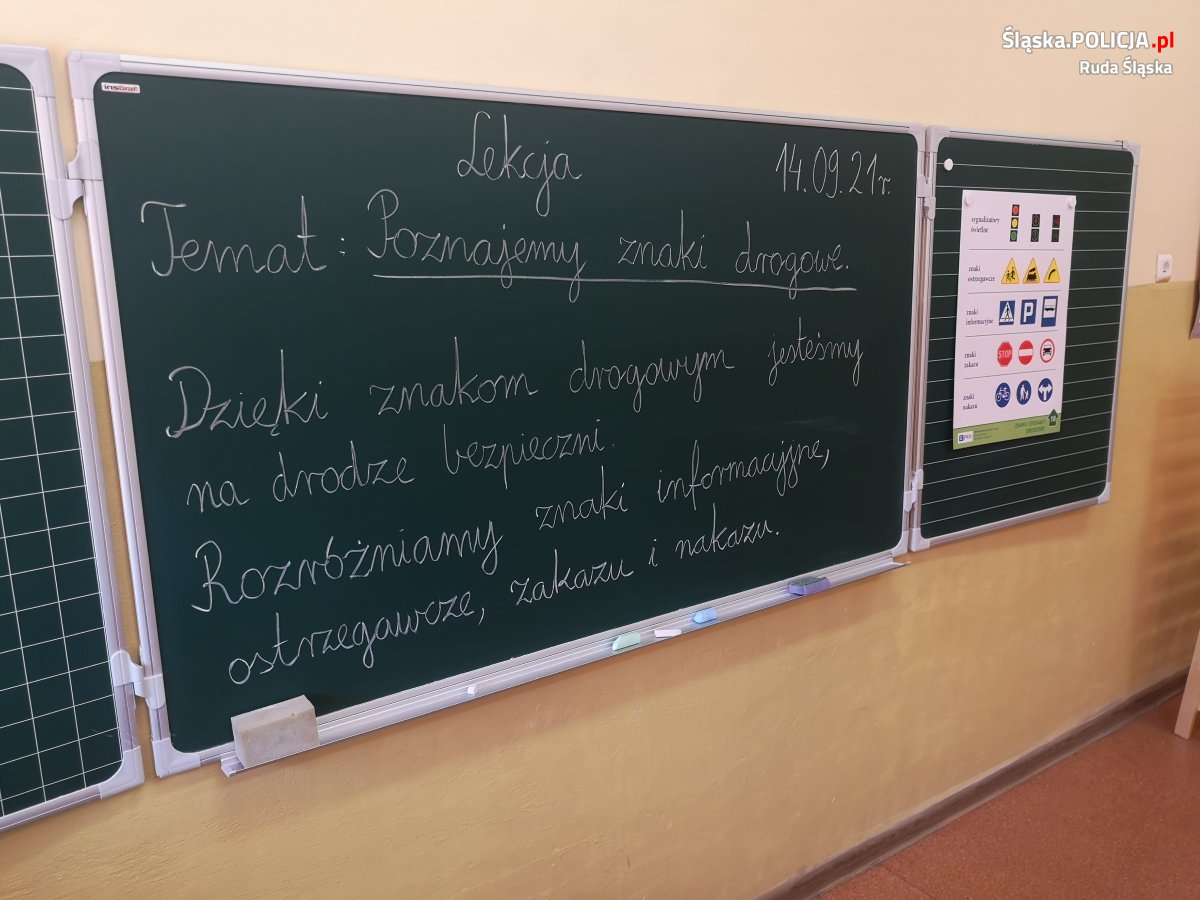 Śląska.POLICJA.pl
Ruda Śląska
insgraf
Lekcja
14.09.21r.
Temat: Poznajemy znaki drogowe.
Dzięki znakom drogowym jesteśmy
na drodze bezpieczni.
Rozróżniamy znaki informacyjne,
ostrzegawcze, zakazu i nakazu.
sygnalizatory
świetlne
znaki
ostrzegawcze
znaki
informacyjne
P
znaki
zakazu
STOP
znaki
nakazu
ZNAKI I SYGNAŁY
DROGOWE